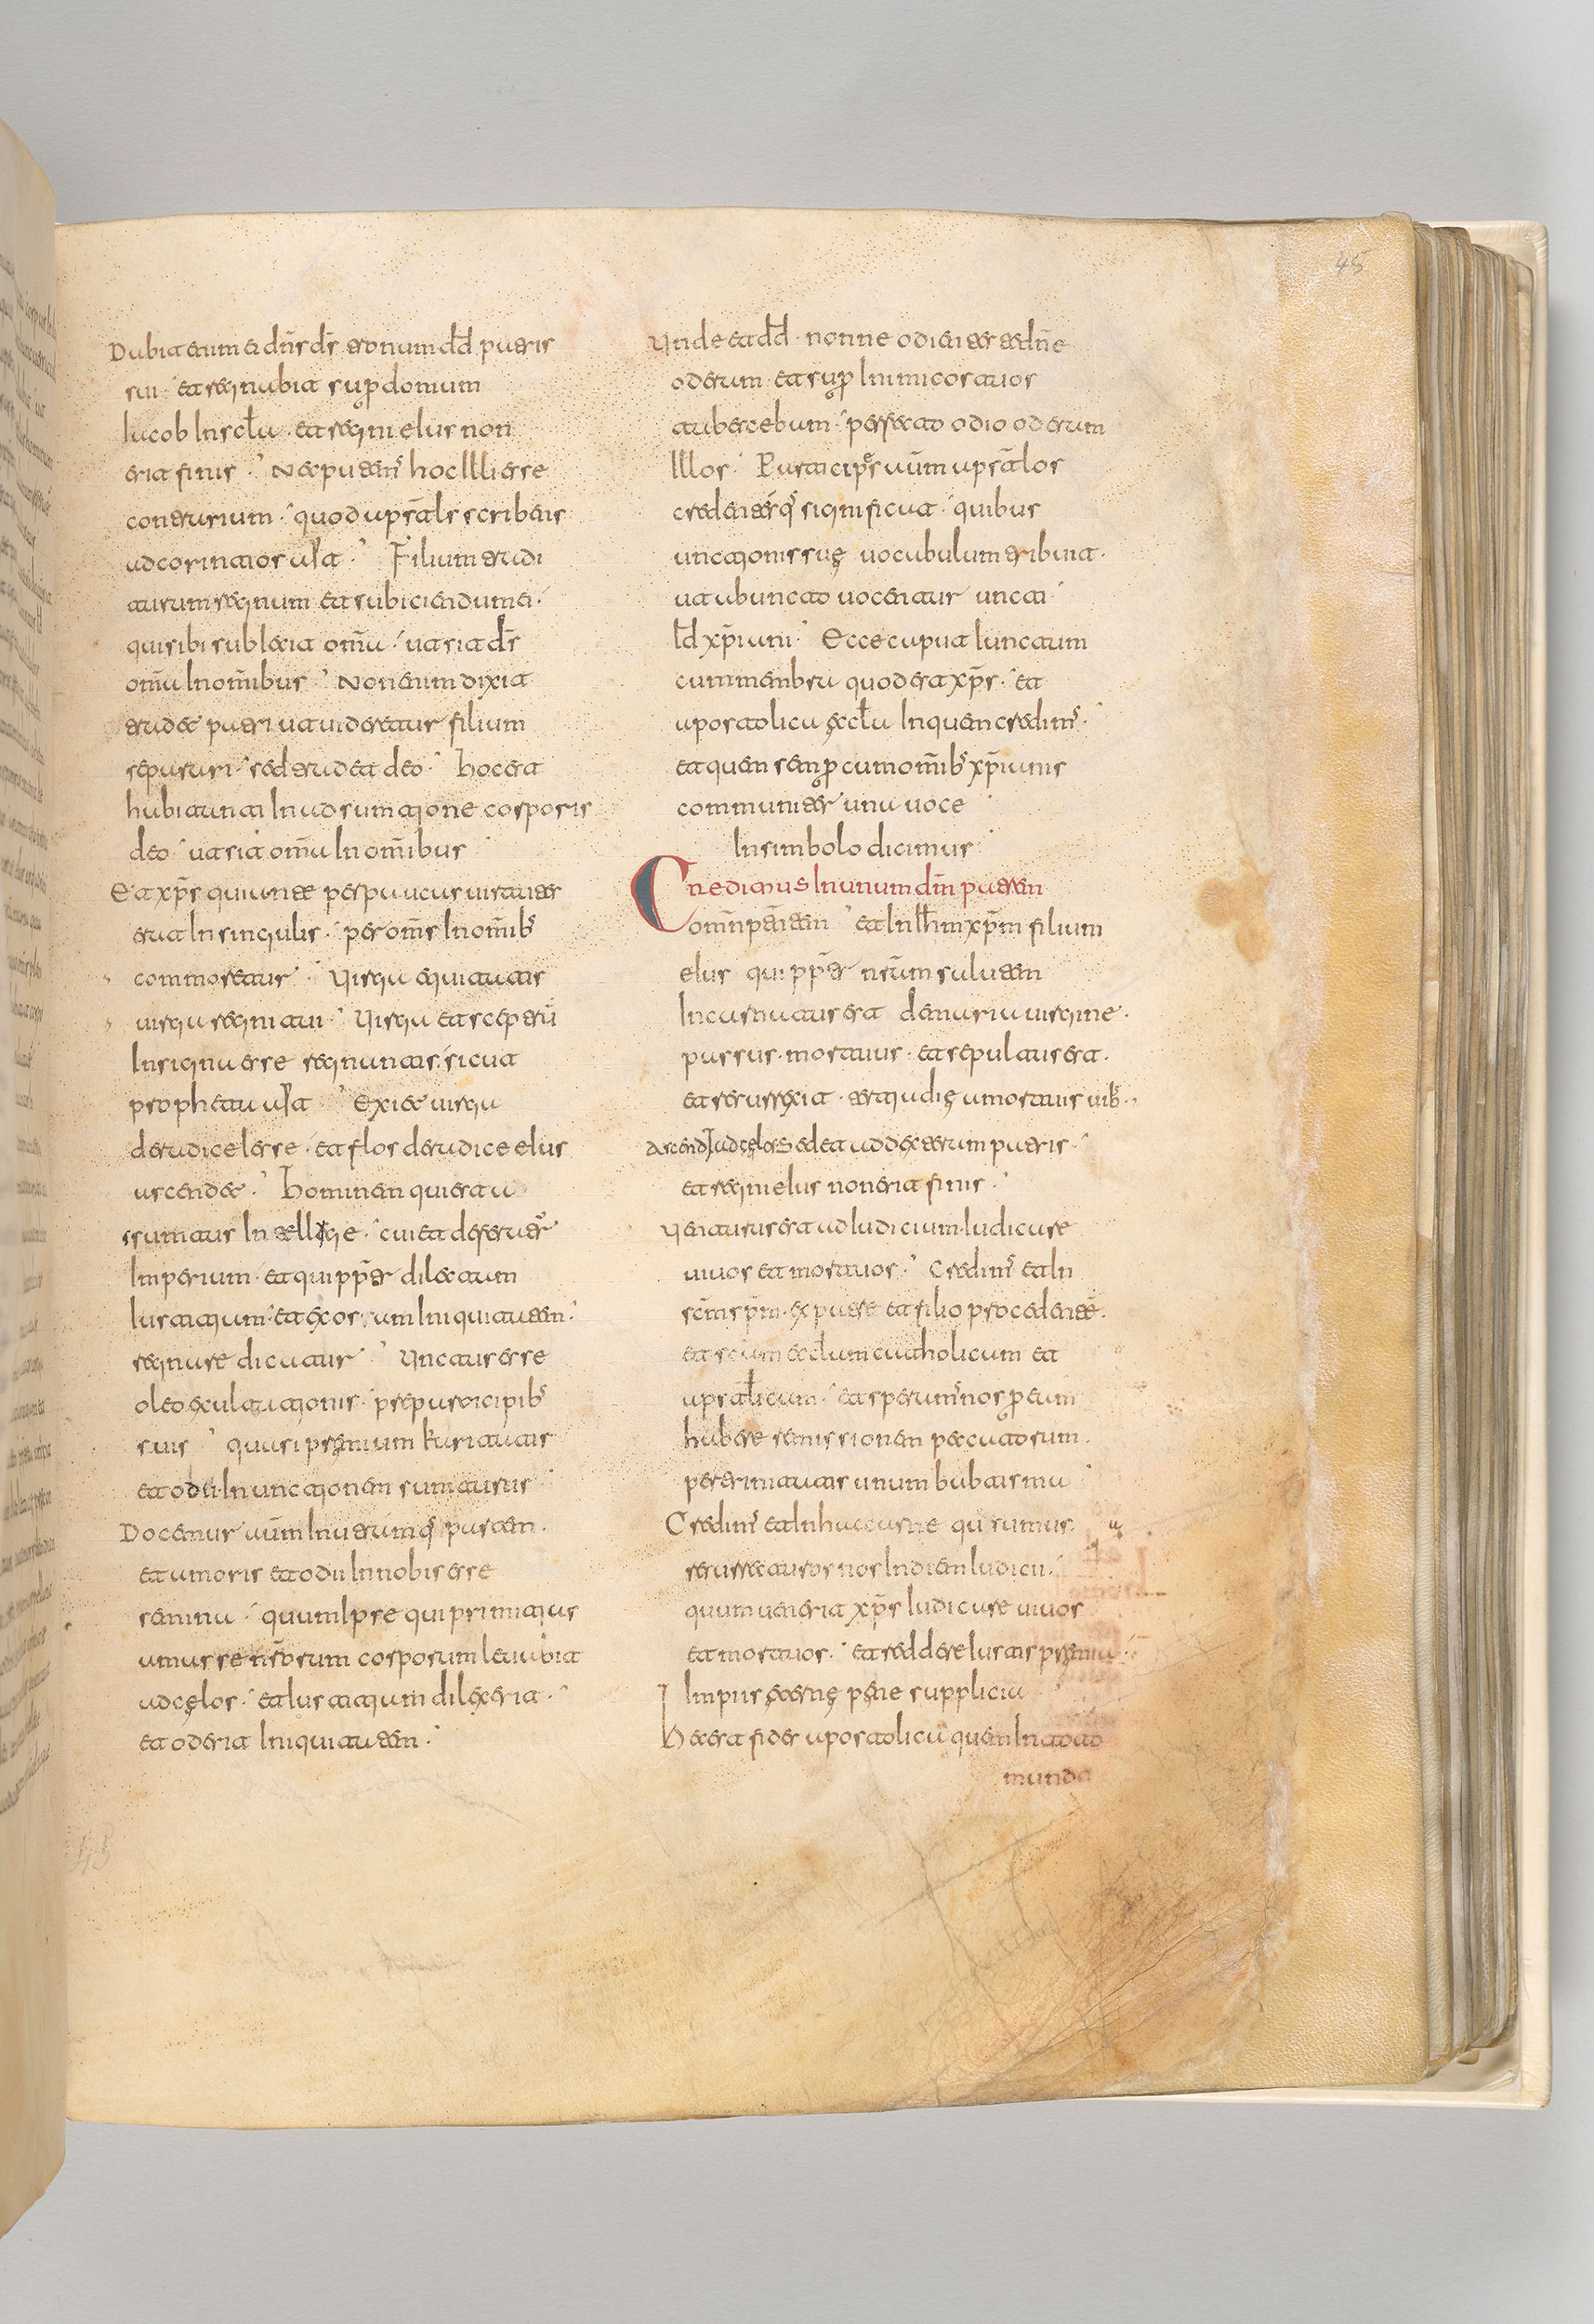 Dabit enim ei dn̄s ds̄ tronum dd̄ patris
sui · et regnabit sup̱ domum
Iacob in scl̄a · et regni eius non
erit finis · Nec putem' hoc illi esse
contrarium · quod apstl̄s scribens
ad corintios ait · Filium tradi
turum regnum et subiciendum ei ·
qui sibi subiecit om̄a · ut sit ds̄
om̄a in om̄ibus · Non enim dixit
tradet patri ut uideretur filium
separari · sed tradet deo · hoc est
habitanti in adsumtione corporis
deo · ut sit om̄a in om̄ibus
Et xp̄s qui ante per paucas uirtutes
erat in singulis · per om̄s in om̄ib'
commoretur · Virga equitatis
uirga regni tui · Virga et sceptrū
insigna esse regnantis · sicut
propheta ait · Exiet uirga
de radice iesse · et flos de radice eius
ascendet · hominem qui erat a
ssumtus intellige · cui et deseruet
imperium · et qui pp̄ter dilectum
iustitium · et exosum iniquitatem ·
regnare dicatur · Unctus esse
oleo exultationis · pre participib'
suis · quasi premium karitatis
et odii in unctionem sumturus
Docemur aūm partem ·
et amoris et odii in nobis esse
semina · quum ipse qui primitias
nr̄orum corporum leuabit
ad celos · et iustitium dilexerit ·
et oderit iniquitatem ·
Unde et dd̄ · nonne odientes te dn̄e
oderam et sup̱ inimicos tuos
tabescebam · perfecto odio oderam
illos · Participes aūm apstl̄os
credentesq' significat · quibus
unctionis sue uocabulum tribuit ·
ut ab uncto uocentur uncti
id xp̄iani · Ecce caput iunctum
cum menbra quod est xp̄s · et
apostolica eccl̄a in quem credim' ·
et quem semp̱ cum om̄ib' xp̄ianis
communiter una uoce
In simbolo dicimus
Credimus in unum dm̄ patrem
om̄ptentem et in ih̄m xp̄m filium
eius qui pp̄ter nr̄am salutem
incarnatus est de maria uirgine ·
passus · mortuus · et sepultus est ·
et resurrexit · tertia die a mortuis uib' ·
ascend ad celos Sedet ad dexteram patris ·
et regni eius non erit finis ·
Venturus est ad iudicium · iudicare
uiuos et mortuos · Credim' et in
scm̄ sp̄m · ex patre et filio procedente ·
et scam eccl̄am catholicam et
apstl̄icam · et speram' nos p̱ eam
habere remissionem peccatorum ·
per trinitatis unum babtisma
Credim' et in hac carne qua sumus
resurrecturos nos in diem iudicii ·
quum uenerit xp̄s iudicare uiuos
et mortuos · et reddere iustis premia
Impiis eterne pene supplicia
hec est fides apostolica quem in toto
mundo
45